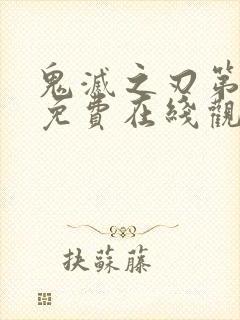 鬼滅之刃第
免費在綫觀
抉蘇藤